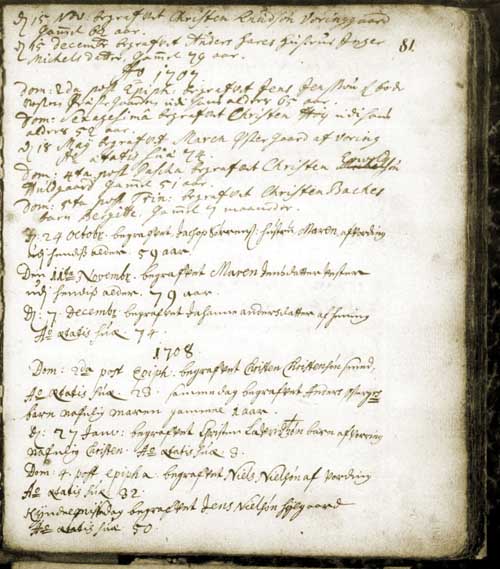 d. 15 Nov: begrafvet Christen Knudsøn Voringgaard
gaml 69 aar.
d. 15 decembr begrafvet Anders Hares Hustrue Inger
Michelsdatter, gaml 79 aar.
81.
Ao 1707
Dom: 2da post Epiph. begrafvet Jens Jenssøn
udi hans alder 65 aar.
Dom: Sexagesima begrafvet Christen udi hans
alders 52 aar.
d. 18 Maij begrafvet Maren Ostergaard af Voring
Ao ætatis suæ 74.
Dom: 4ta post Pascha begrafvet Christen
gaml 51 aar.
Dom: 5ta post Trin: begrafvet Christen Backes
barn Birgitte. gaml 7 maaneder.
d. 24 Octobr. begrafvet Jacop hustru Maren af Vording
udj hendiß alder. 59 aar.
Den 11te Novembr. begrafvet Maren Jensdatter
udj hendiß alder. 79 aar.
D. 7. decembr. begrafvet Johanne Andersdatter af
Ao ætatis suæ 74.
1708
Dom: 2da post Epiph: begrafvet Christen Christensøn smed,
Ao ætatis suæ 28. samme dag begrafvet Anders
barn nafnlig Maren gammel 1 aar.
d: 27 Janv: begrafvet barn af Vorring
nafnlig Christen. Ao ætatis suæ 3.
Dom: 4. post Epipha. begrafvet Niels Nielsøn af Vording
Ao ætatis suæ 32.
Kyndelmisdag begrafvet Jens Nielsøn
Ao ætatis suæ 50.